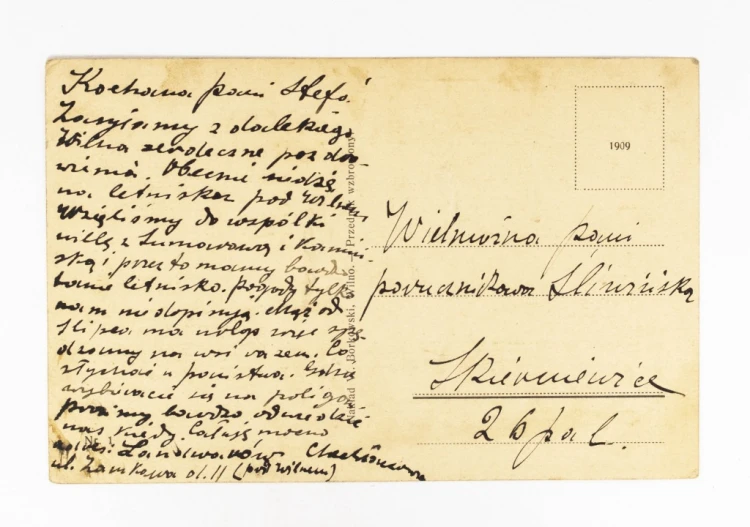 Kochana pani Stefo!
Zasyłamy z dalekiego
Wilna serdeczne pozdro-
wienia. Obecnie siedzę
na letnisku pod Wilnem
Wzięliśmy do współki
willę z Sumorową i Kamiń-
ską i przez to mamy bardzo
tanie letnisko. Pogody tylko
nam nie dopisują. Mąż od
Lipca ma urlop więc spę-
dzamy na wsi razem. Co
słychać u państwa. Gdzie
wybieracie się na poligon
prosimy bardzo odwiedzić
nas kiedy. Całuję mocno
adres: Landwarów
ul. Zamkowa 11 (pod Wilnem)
Nakład W. Borkowski, Wilno. Przedruk wzbroniony.
Nr. 1
1909
Wielmożna pani
porucznikowa Śliwińska
Skierniewice
26 pal.